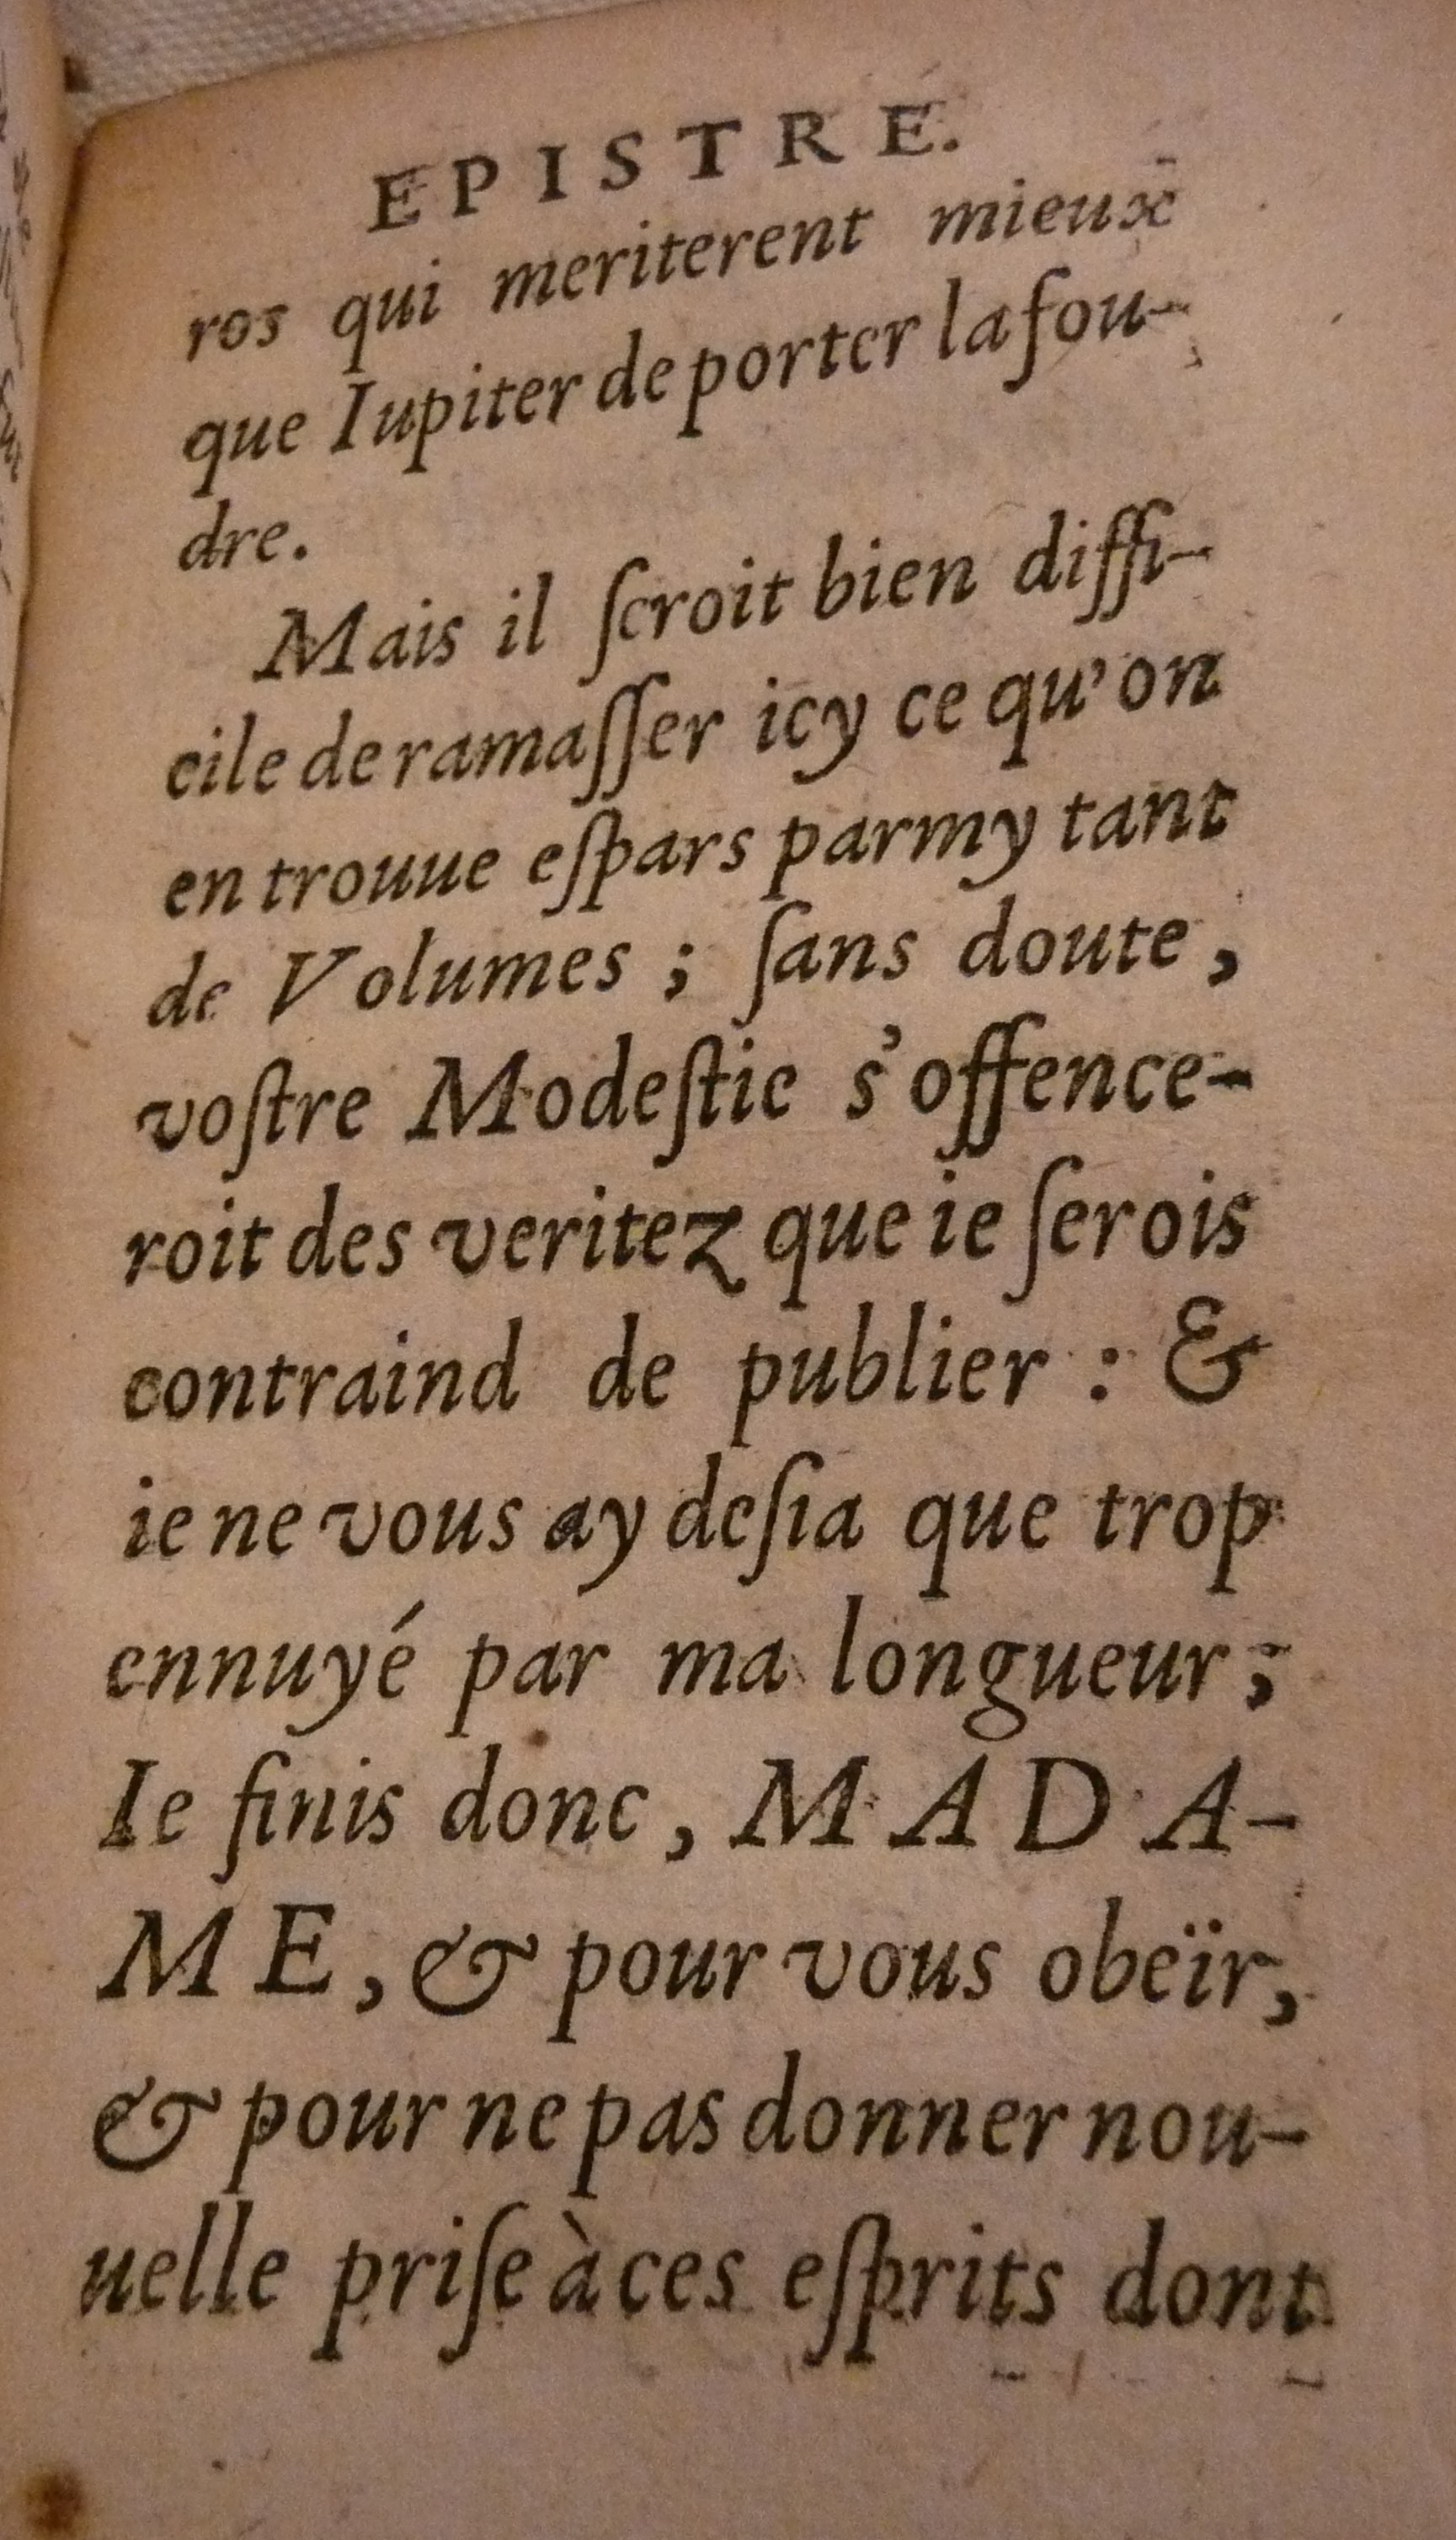 EPISTRE.
ros qui meriterent mieux
que Iupiter de porter la fou-
dre.
Mais il ſeroit bien diffi-
cile de ramaſſer icy ce qu'on
en trouue eſpars parmy tant
de Volumes ; ſans doute ,
voſtre Modeſtie s'offence-
roit des veritez que ie ſerois
contraind de publier : &
ie ne vous ay deſia que trop
ennuyé par ma longueur ;
Ie finis donc , MADA-
ME , & pour vous obeïr,
& pour ne pas donner nou-
uelle priſe à ces eſprits dont